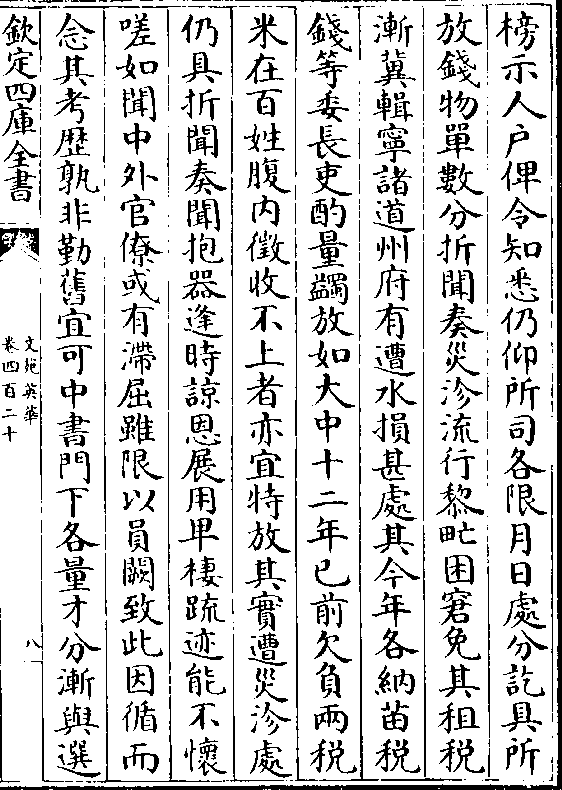 榜示人户俾令知悉仍仰所司各限月日處分訖具所
放錢物單數分折聞奏災沴流行黎甿困窘免其租税
漸冀輯寧諸道州府有遭水損甚處其今年各納苗税
錢等委長吏酌量蠲放如大中十二年已前欠負兩税
米在百姓腹内徵收不上者亦宜特放其實遭災沴處
仍具折聞奏聞抱器逢時諒思展用卑棲疏迹能不懷
嗟如聞中外官僚或有滯屈雖限以員闕致此因循而
念其考歴孰非勤舊宜可中書門下各量才分漸與選
欽定四庫全書
文苑英華
卷四百二十
八